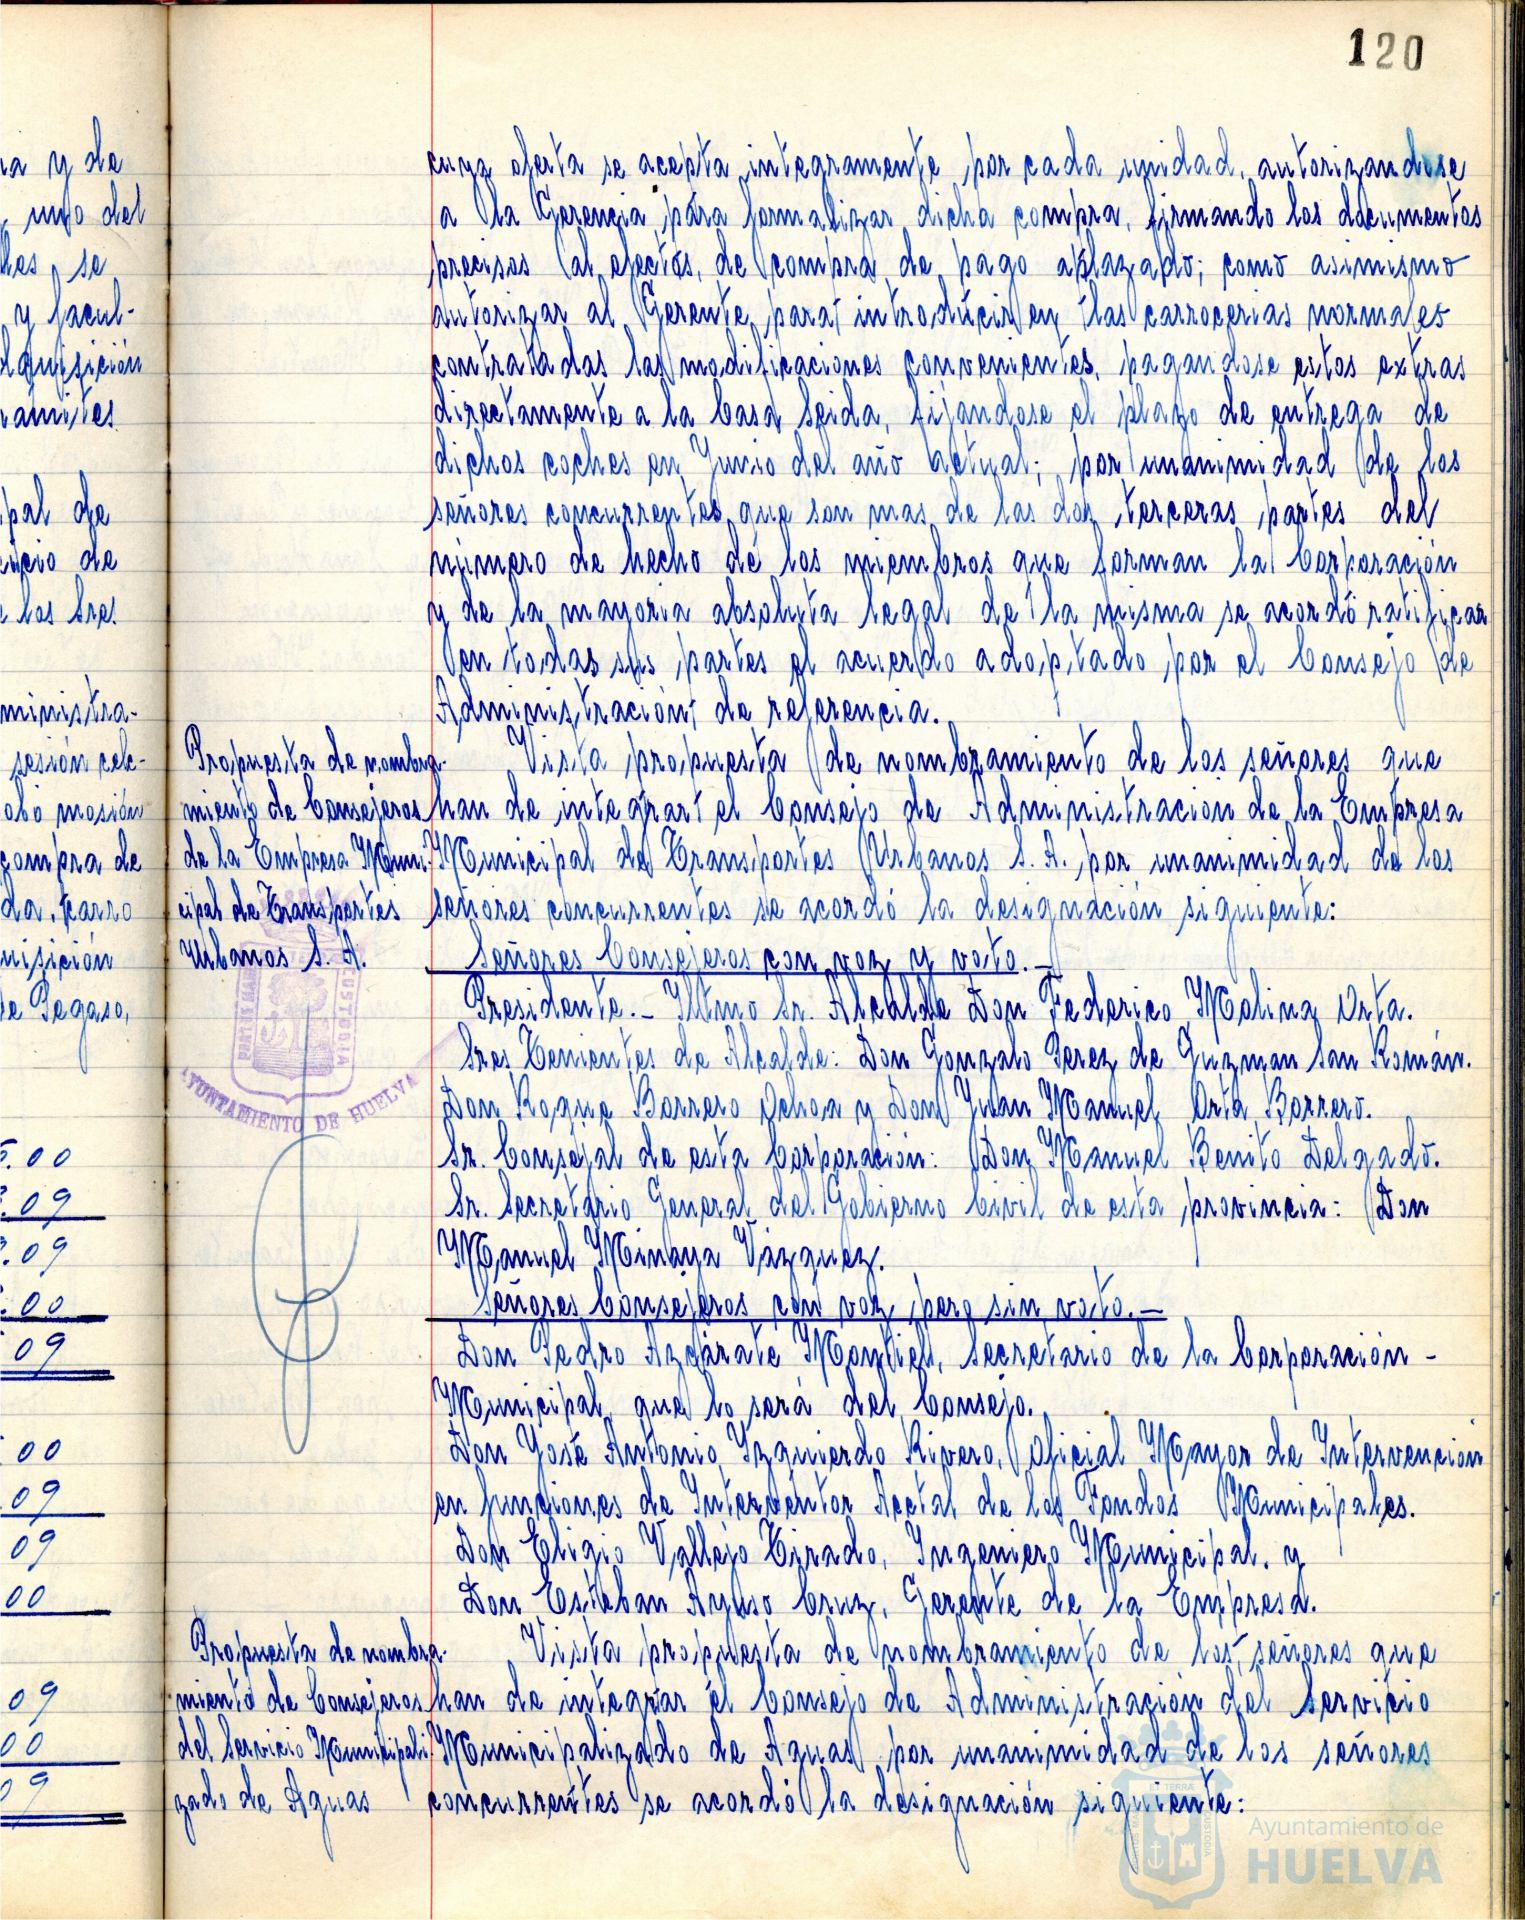 120
na y de
uno del
les se
y facul-
dquisición
rámites
ipal de
icio de
e los Sres.
ministra-
sesión cele-
obó moción
compra de
da, carro
uisición
de Pegaso,
5.00
09
09
00
09
00
09
09
00
09
00
09
cuya oferta se acepta integramente por cada unidad, autorizandose
a la Gerencia para formalizar dicha compra, firmando los documentos
precisos al efectos, de compra de pago aplazado; como asimismo
autorizar al Gerente para introducir en las carrocerias normales
contratadas las modificaciones convenientes, pagandose estos extras
directamente a la Casa Seida, fijandose el plazo de entrega de
dichos coches en Junio del año actual; por unanimidad de los
señores concurrentes que son mas de las dos terceras partes del
número de hecho de los miembros que forman la Corporación
y de la mayoria absoluta legal de la misma se acordó ratificar
en todas sus partes el acuerdo adoptado por el Consejo de
Administración de referencia.
Propuesta de nombra-
miento de Consejeros
de la Empresa Muni-
cipal de Transportes
Urbanos S. A.
Vista propuesta de nombramiento de los señores que
han de integrar el Consejo de Administracion de la Empresa
Municipal de Transportes Urbanos S. A. por unanimidad de los
señores concurrentes se acordó la designación siguiente:
Señores Consejeros con voz y voto.-
Presidente.- Iltmo Sr. Alcalde Don Federico Molina Orta.
Sres Tenientes de Alcalde: Don Gonzalo Perez de Guzman San Román.
Don Roque Barrero Ochoa y Don Juan Manuel Orta Borrero.
Sr. Consejal de esta Corporación: Don Manuel Benito Delgado.
Sr. Secretario General del Gobierno Civil de esta provincia: Don
Manuel Minaya Vázquez.
Señores Consejeros con voz pero sin voto.-
Don Pedro Azcárate Montiel, Secretario de la Corporación -
Municipal que lo será del Consejo.
Don José Antonio Izquierdo Rivero, Oficial Mayor de Intervencion
en funciones de Interventor Acctal de los Fondos Municipales.
Don Eligio Vallejo Tirado, Ingeniero Municipal. y
Don Esteban Ayuso Cruz, Gerente de la Empresa.
Propuesta de nombra-
miento de Consejeros
del Servicio Municipali-
zado de Aguas
Vista propuesta de nombramiento de los señores que
han de integrar el Consejo de Administración del Servicio
Municipalizado de Aguas por unanimidad de los señores
concurrentes se acordó la designación siguiente:
AYUNTAMIENTO DE HUELVA
CUSTODIA
ET TERRA
CUSTODIA
Ayuntamiento de
HUELVA